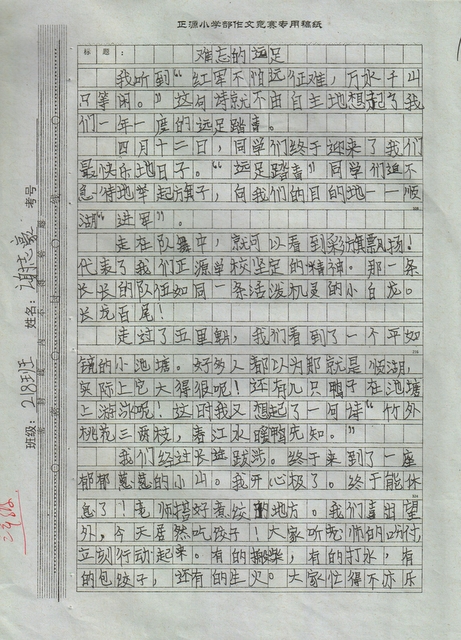 正源小学部作文竞赛专用稿纸
标题： 难忘的远足
我听到“红军不怕远征难，万水千山
只等闲。”这句诗就不由自主地想起了我
们一年一度的远足踏青。
四月十二日，同学们终于迎来了我们
最快乐地日子。“远足踏青”同学们迫不
急待地举起旗子，向我们的目的地——顺
湖“进军”。
走在队伍中，就可以看到彩旗飘扬！
代表了我们正源学校坚定的精神。那一条
长长的队伍如同一条活泼机灵的小白龙。
长龙百尾！
走过了五里朝，我们看到了一个平如
镜的小池塘。好多人都以为那就是顺湖，
实际上它大得很呢！还有几只鸭子在池塘
上游泳呢！这时我又想起了一句诗“竹外
桃花三两枝，春江水暖鸭先知。”
我们经过长途跋涉。终于来到了一座
郁郁葱葱的小山。我开心极了。终于能休
息了！老师搭好煮饺的地方。我们喜出望
外，今天居然吃饺子！大家听老师的吩咐，
立刻行动起来。有的搬柴，有的打水，有
的包饺子，还有的生火。大家忙得不亦乐
考号
姓名：
班级：218班